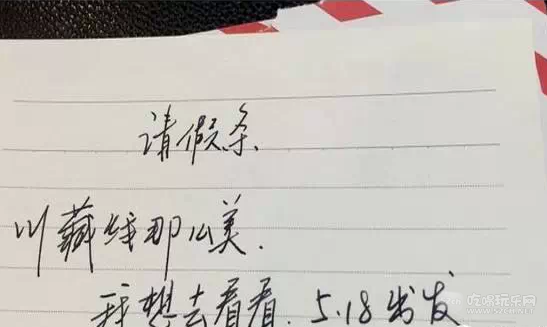 请假条.
川藏线那么美.
我想去看看. 5.18出发
吃喝玩乐网